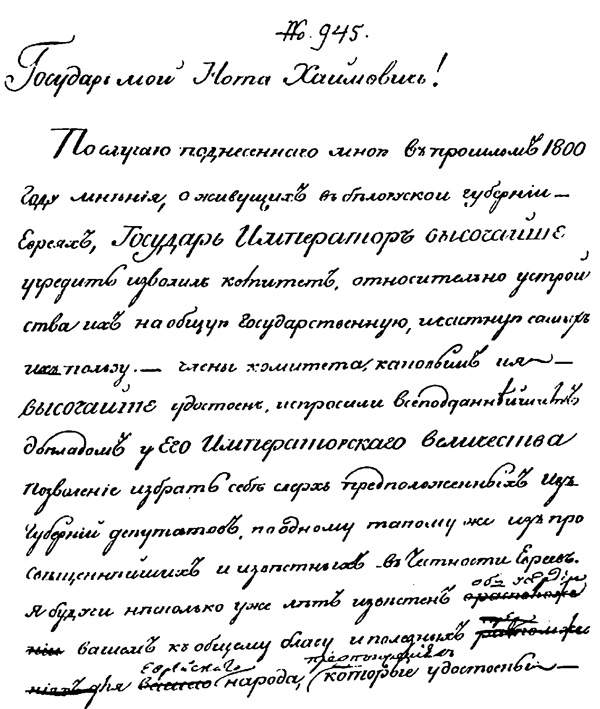 № 945.
Государь мой Нота Хаймовичь!
По случаю поднесеннаго мною въ прошломъ 1800
году мнѣнія, о живущихъ въ бѣлорускои губерніи
Евреяхъ, Государь Императоръ высочайше
учредить изволилъ комитетъ, относительно устрой
ства ихъ на общую государственную, и истиную самыхъ
ихъ пользу. — члены комитета, каковымъ и я —
высочайше удостоенъ, испросили всеподданнѣйшимъ
докладомъ у Его Императорскаго величества
позволеніе избрать себѣ сверхъ предположенныхъ изъ
Губерній депутатовъ, по одному такому же изъ про
свѣщеннѣйшихъ и извѣстныхъ въ честности Евреевъ.
Я будучи нѣсколько уже лѣтъ извѣстенъ
объ усердіи
вашемъ къ общему благу и полезныхъ
для народа, которые удостоены —
Еврейскаго